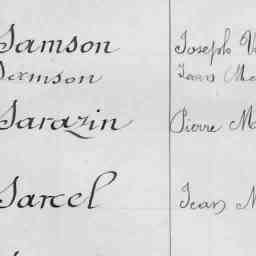 Samson Joseph V
Sermson Jean Ma
Sarazin Pierre Ma
Sarcel Jean M